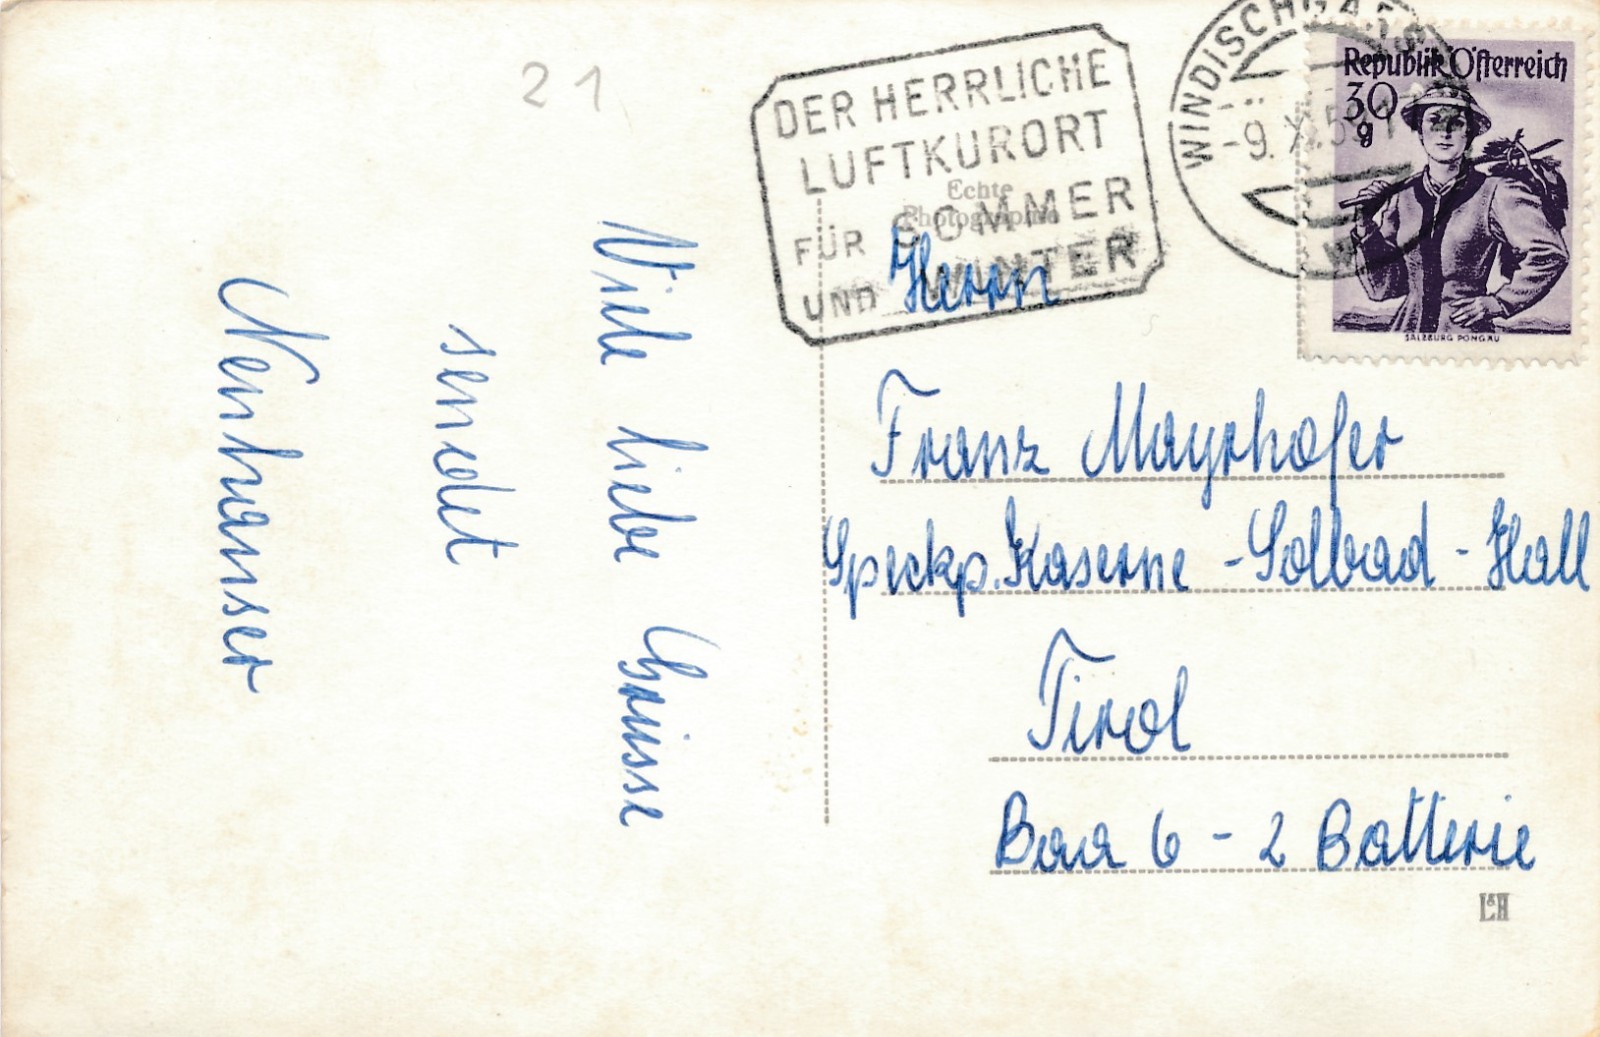 21
DER HERRLICHE
LUFTKURORT
FÜR SOMMER
UND WINTER
WINDISCHGARS
-9. X
Republik Österreich
30
g
SALZBURG PONGAU
Echte
Photographie
Viele liebe Grüsse
sendet
Herrn
Franz Mayrhofer
Speckp. Kaserne - Solbad - Hall
Tirol
Baa 6 - 2 Batterie
L&H